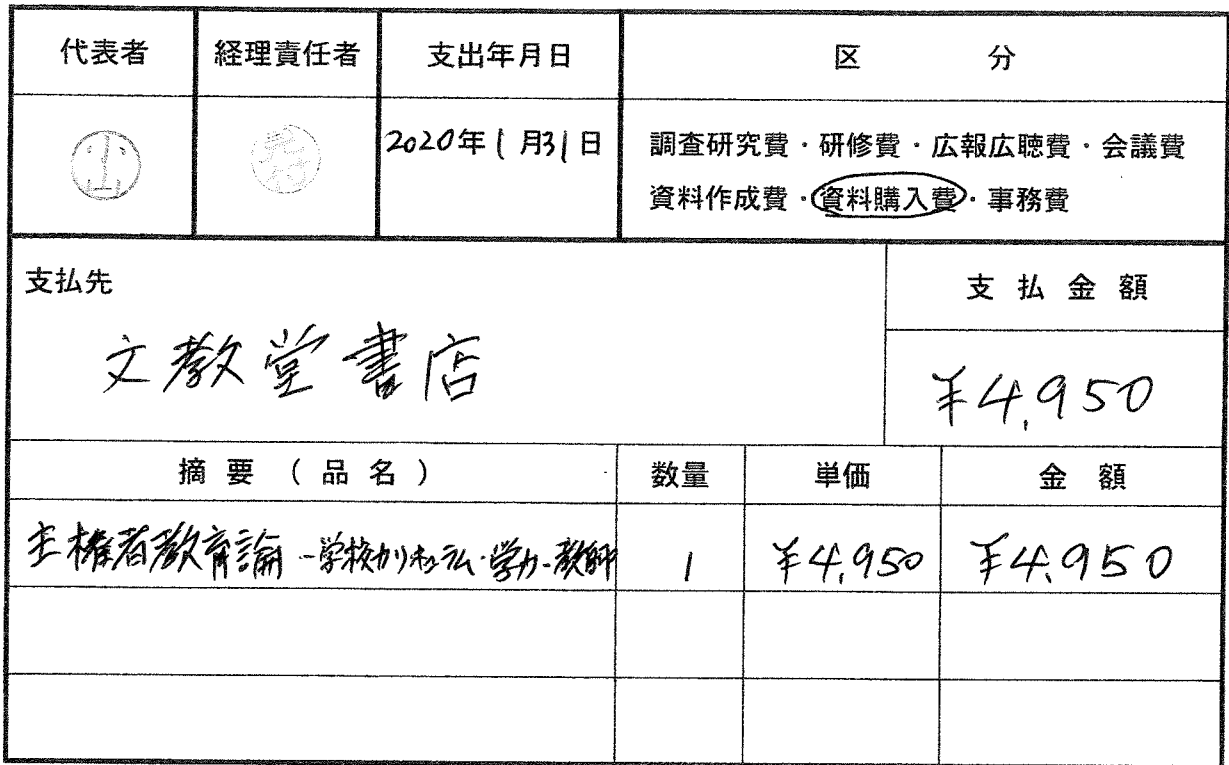 代表者 経理責任者 支出年月日 区 分
2020年1月31日 調査研究費・研修費・広報広聴費・会議費
資料作成費・資料購入費・事務費
支払先 支払金額
文教堂書店 ¥4,950
摘要(品名) 数量 単価 金額
主権者教育論 -学校カリキュラム・学力・教師 1 ¥4,950 ¥4,950